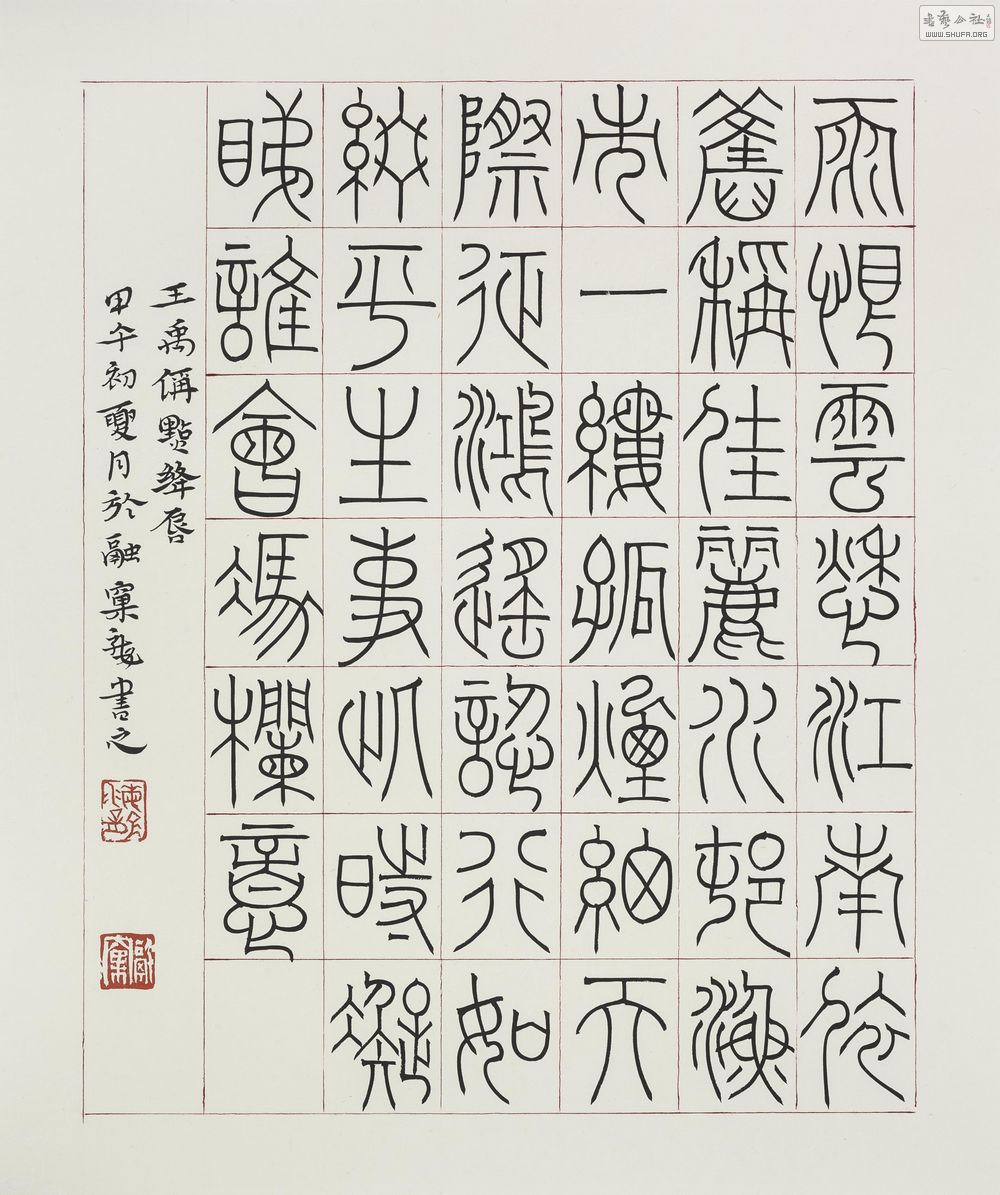 雨恨雲愁江南依
舊稱佳麗水邨漁
市一縷孤煙細天
際征鴻遙認行如
綴平生事此時凝
睇誰會馮欄意
王禹偁點絳唇
甲午初夏月於融窠龍書之
書藝公社
WWW.SHUFA.ORG